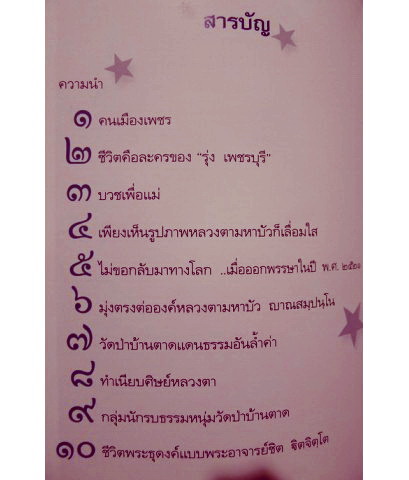 สารบัญ
ความนำ
๑ คนเมืองเพชร
๒ ชีวิตคือละครของ "รุ่ง เพชรบุรี"
๓ บวชเพื่อแม่
๔ เพียงเห็นรูปภาพหลวงตามหาบัวก็เลื่อมใส
๕ ไม่ขอกลับมาทางโลก ..เมื่อออกพรรษาในปี พ.ศ.
๖ มุ่งตรงต่อองค์หลวงตามหาบัว ญาณสมฺปนฺโน
๗ วัดป่าบ้านตาดแดนธรรมอันล้ำค่า
๘ ทำเนียบศิษย์หลวงตา
๙ กลุ่มนักรบธรรมหนุ่มวัดป่าบ้านตาด
๑๐ ชีวิตพระธุดงค์แบบพระอาจารย์ชิต ฐิตจิตฺโต